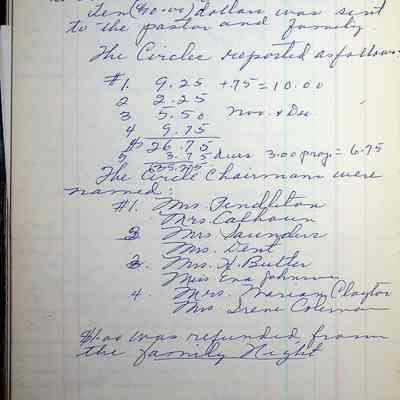 Ten ($10.00) dollars was sent
to the pastor and family.
The Circles reported as follows:
#1. 9.25 + 75 = 10.00
2 2.25
3 5.50 Nov. & Dec
4 9.75
$26.75
5 3.75 dues 3.00 proj = 6.75
The Circle Chairmans were
named:
#1. Mrs. Pendleton
Mrs. Calhoun
2 Mrs Saunders
Mrs. Dent
3. Mrs. H. Butler
Miss Eva Johnson
4. Mrs. Marian Clayton
Mrs. Irene Coleman
$1.00 was refunded from
the family Night